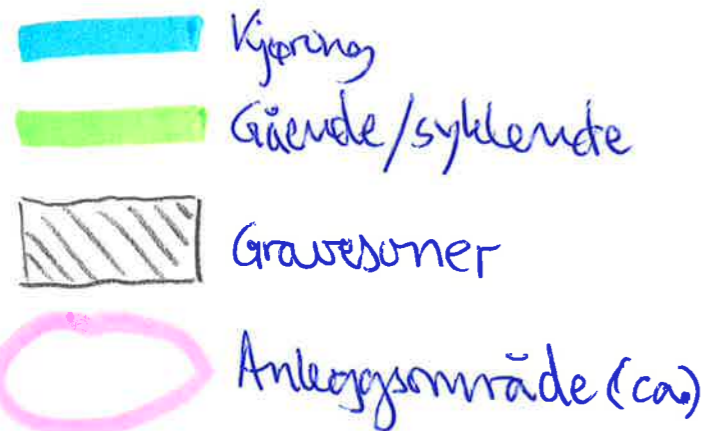 Kjøring
Gående/syklende
Gravesoner
Anleggsområde (ca.)